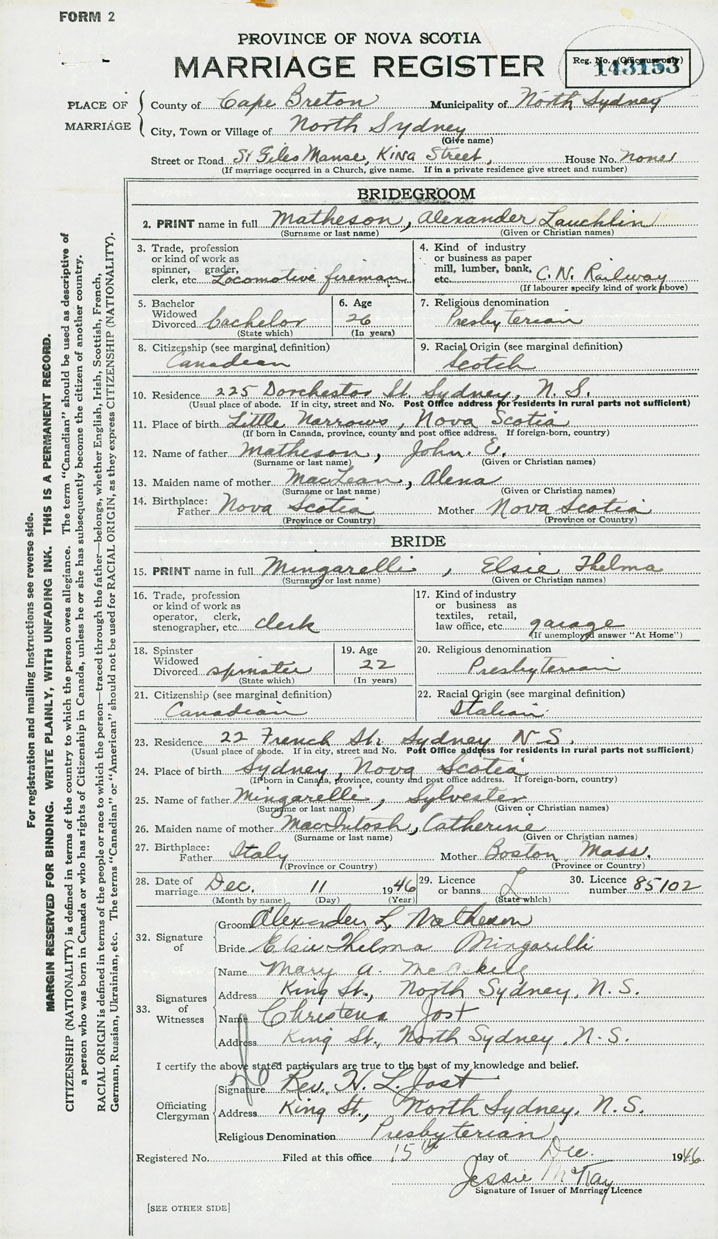 FORM 2
PROVINCE OF NOVA SCOTIA
MARRIAGE REGISTER
Reg. No. (Office use only)
143153
PLACE OF MARRIAGE
County of Cape Breton Municipality of North Sydney
City, Town or Village of North Sydney
(Give name)
Street or Road St Giles Manse, King Street, House No. none
(If marriage occurred in a Church, give name. If in a private residence give street and number)
BRIDEGROOM
2. PRINT name in full Matheson, Alexander Lauchlin
(Surname or last name) (Given or Christian names)
3. Trade, profession or kind of work as spinner, grader, clerk, etc. Locomotive fireman
4. Kind of industry or business as paper mill, lumber, bank, etc. C.N. Railway
(If labourer specify kind of work above)
5. Bachelor Widowed Divorced bachelor
(State which)
6. Age 26
(In years)
7. Religious denomination
Presbyterian
8. Citizenship (see marginal definition)
Canadian
9. Racial Origin (see marginal definition)
Scotch
10. Residence 225 Dorchester St. Sydney, N.S.
(Usual place of abode. If in city, street and No. Post Office address for residents in rural parts not sufficient)
11. Place of birth Little Narrows, Nova Scotia
(If born in Canada, province, county and post office address. If foreign-born, country)
12. Name of father Matheson, John E.
(Surname or last name) (Given or Christian names)
13. Maiden name of mother MacLean, Alena
(Surname or last name) (Given or Christian names)
14. Birthplace: Father Nova Scotia Mother Nova Scotia
(Province or Country) (Province or Country)
BRIDE
15. PRINT name in full Mingarelli, Elsie Thelma
(Surname or last name) (Given or Christian names)
16. Trade, profession or kind of work as operator, clerk, stenographer, etc. clerk
17. Kind of industry or business as textiles, retail, law office, etc. garage
(If unemployed answer "At Home")
18. Spinster Widowed Divorced spinster
(State which)
19. Age 22
(In years)
20. Religious denomination
Presbyterian
21. Citizenship (see marginal definition)
Canadian
22. Racial Origin (see marginal definition)
Italian
23. Residence 22 French St. Sydney N.S.
(Usual place of abode. If in city, street and No. Post Office address for residents in rural parts not sufficient)
24. Place of birth Sydney, Nova Scotia
(If born in Canada, province, county and post office address. If foreign-born, country)
25. Name of father Mingarelli, Sylvester
(Surname or last name) (Given or Christian names)
26. Maiden name of mother MacIntosh, Catherine
(Surname or last name) (Given or Christian names)
27. Birthplace: Father Italy Mother Boston Mass.
(Province or Country) (Province or Country)
28. Date of marriage Dec. 11 1946
(Month by name) (Day) (Year)
29. Licence or banns L
(State which)
30. Licence number 85102
32. Signature of
Groom Alexander L. Matheson
Bride Elsie Thelma Mingarelli
33. Signatures of Witnesses
Name Mary A.
Address King St., North Sydney, N.S.
Name Christena Jost
Address King St., North Sydney, N.S.
I certify the above stated particulars are true to the best of my knowledge and belief.
Officiating Clergyman
Signature Rev. H. L. Jost
Address King St., North Sydney, N.S.
Religious Denomination Presbyterian
Registered No. Filed at this office 15th day of Dec. 1946
Jessie McKay
Signature of Issuer of Marriage Licence
[SEE OTHER SIDE]
For registration and mailing instructions see reverse side.
MARGIN RESERVED FOR BINDING. WRITE PLAINLY, WITH UNFADING INK. THIS IS A PERMANENT RECORD.
CITIZENSHIP (NATIONALITY) is defined in terms of the country to which the person owes allegiance. The term "Canadian" should be used as descriptive of
a person who was born in Canada or who has rights of Citizenship in Canada, unless he or she has subsequently become the citizen of another country.
RACIAL ORIGIN is defined in terms of the people or race to which the person—traced through the father—belongs, whether English, Irish, Scottish, French,
German, Russian, Ukrainian, etc. The terms "Canadian" or "American" should not be used for RACIAL ORIGIN, as they express CITIZENSHIP (NATIONALITY).